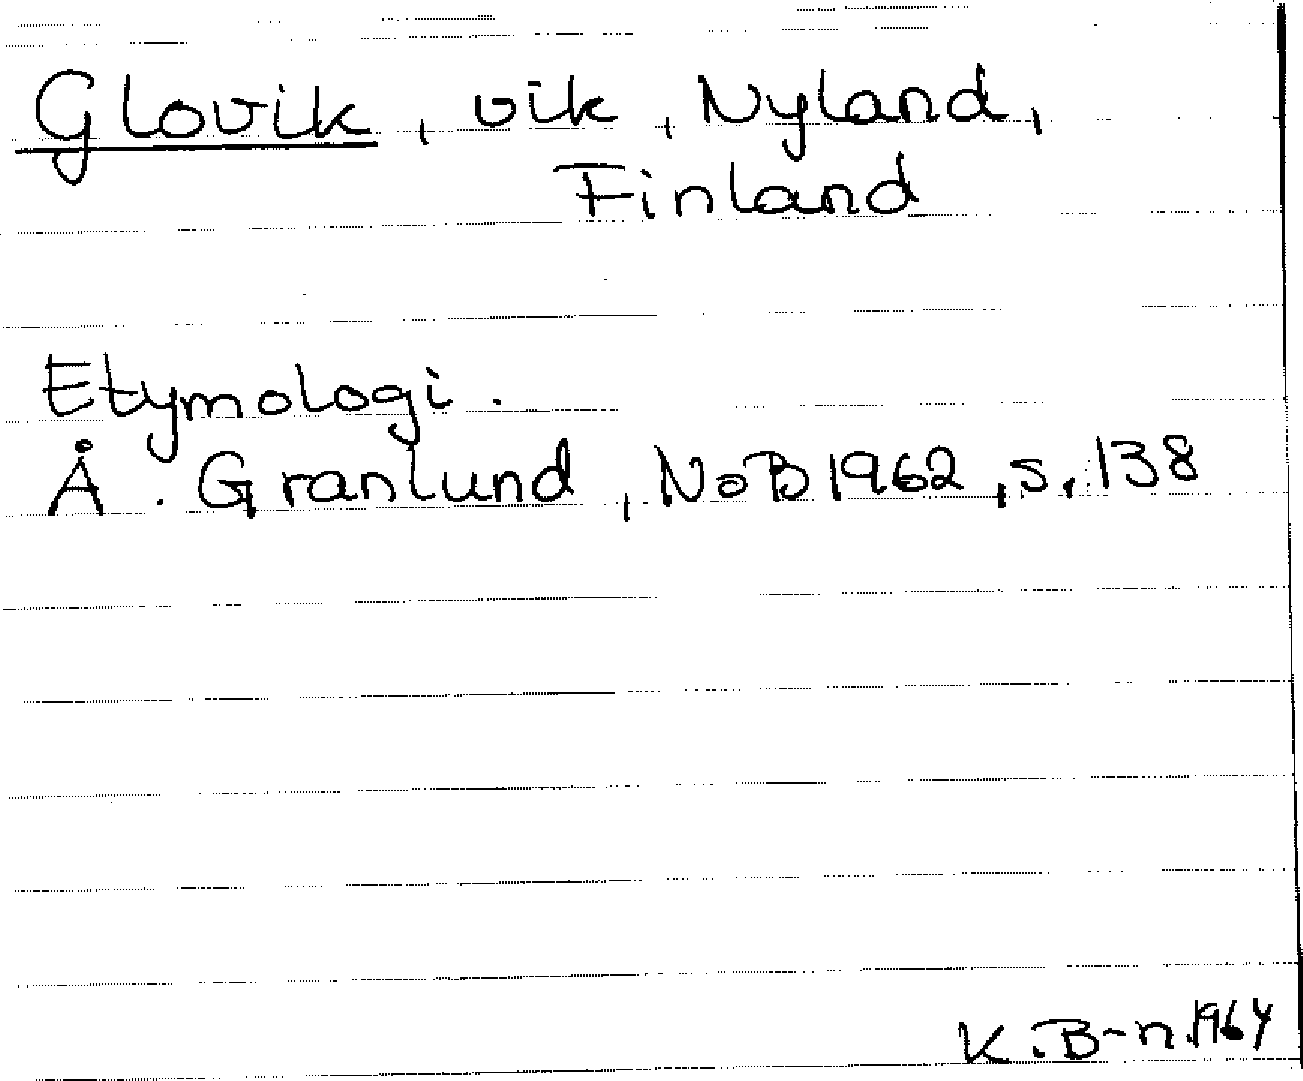 Glovik, vik, Nyland,
Finland
Etymologi.
Å. Granlund, NoB 1962, s. 138
K. B-n. 1964